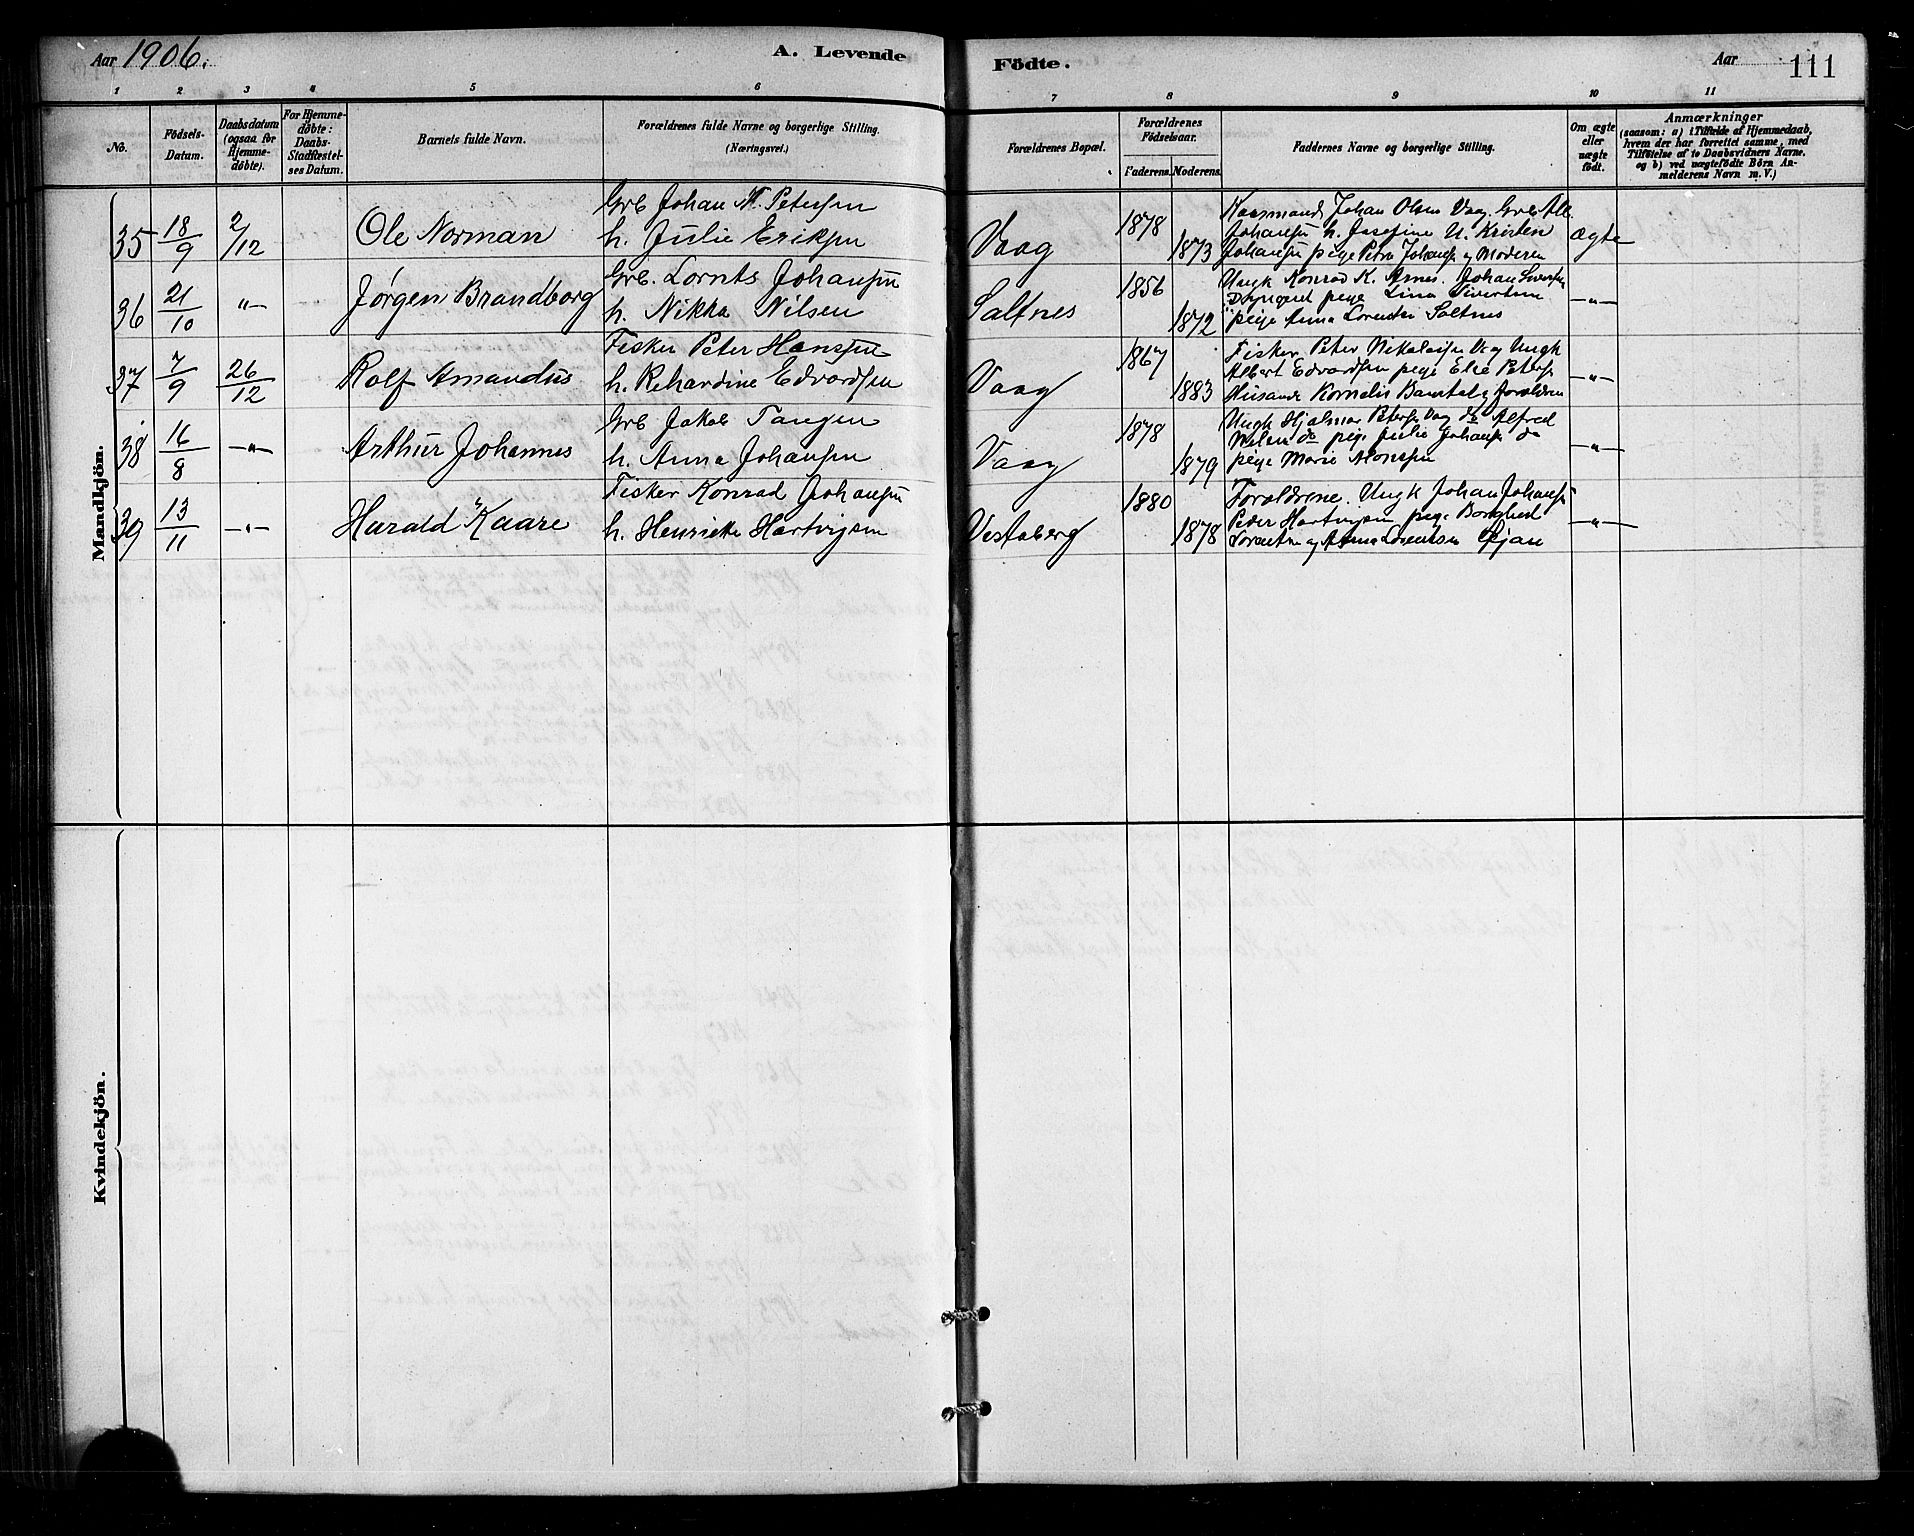 Aar 1906.
A. Levende
Födte.
Aar
111
1 2 3 4 5 6 7 8 9 10 11
No.
Födsels-
Datum.
Daabsdatum
(ogsaa for
Hjemme-
döbte).
For Hjemme-
döbte:
Daabs-
Stadfæstel-
ses Datum.
Barnets fulde Navn.
Forældrenes fulde Navne og borgerlige Stilling.
(Næringsvei.)
Forældrenes Bopæl.
Forældrenes
Födselsaar.
Faderens. Moderens.
Faddernes Navne og borgerlige Stilling.
Om ægte
eller
uægte
födt.
Anmærkninger
(saasom: a) i Tilfælde af Hjemmedaab,
hvem der har forrettet samme, med
Tilföielse af to Daabsvidners Navne.
og b) ved uægtefödte Börn An-
melderens Navn m. V.)
Mandkjön.
35 18/9 2/12 Ole Norman
Grb Johan M. Petersen
h. Julie Eriksen
Vaag
1878
1873
Kaarmand Johan Olsen Vaag. Grb Alb.
Johansen h. Josefine U. Kristen
Johansen pige Petra Johans og Moderen
Ægte
36 21/10 -"- Jørgen Brandborg
Grb. Lornts Johansen
h. Nikka Nilsen
Saltnes
1856
1872
Ungk Konrad K. Arnes. Johan Sverts
pige Lina Sivertsen
pige Anna Lorents Saltnes
-"-
37 7/9 26/12 Rolf Amandus
Fisker Peter Hansen
h. Rehardine Edvardsen
Vaag
1867
1883
Fisker Peter Nikolaisen Vaag Ungk
Albert Edvardsen pige Elea Peters
Husands Kornelis Bamstal og Foraldren
-"-
38 16/8 -"- Arthur Johannes
Grb Jakob Tangen
h. Anna Johansen
Vaag
1878
1879
Ungk Hjalmar Peters Vaag do Alfred
do pige Julie Johans do
pige Marie Monssen
-"-
39 13/11 -"- Harald Kaare
Fisker Konrad Johansen
h. Henriette Hartvigsen
Vestaberg
1880
1878
Foraldrene. Ungk Johan Johans
Peder Hartvigsen pige Borghed
Lorentsen og Anna Lorentsen
-"-
Kvindekjön.